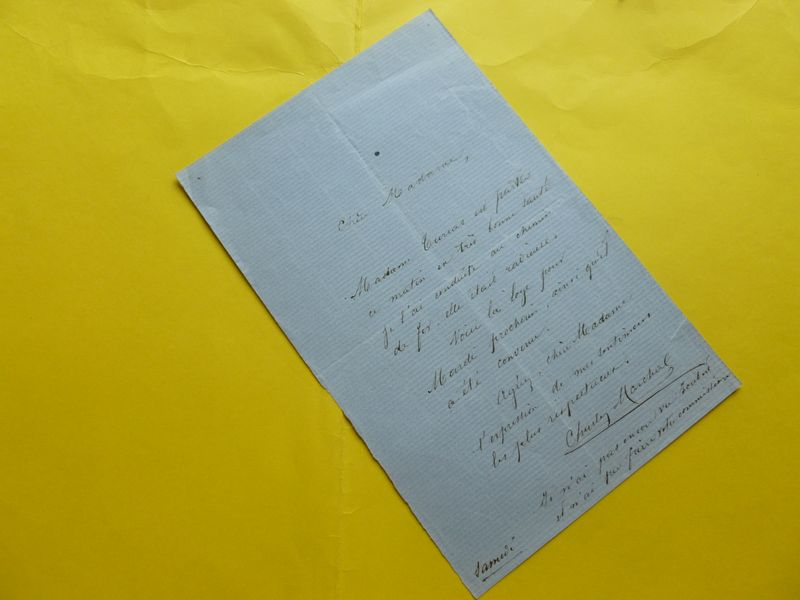 Chère Madame,
Madame est partie
ce matin en très bonne santé
je l'ai conduite au chemin
de fer: elle était radieuse.
Voici la loge pour
Mardi prochain, ainsi qu'il
a été convenu.
Agréez, chère Madame
l'expression de mes sentimens
les plus respectueux.
Charles Marchal
Je n'ai pas encor vu
et n'ai pu faire votre commission
Samedi